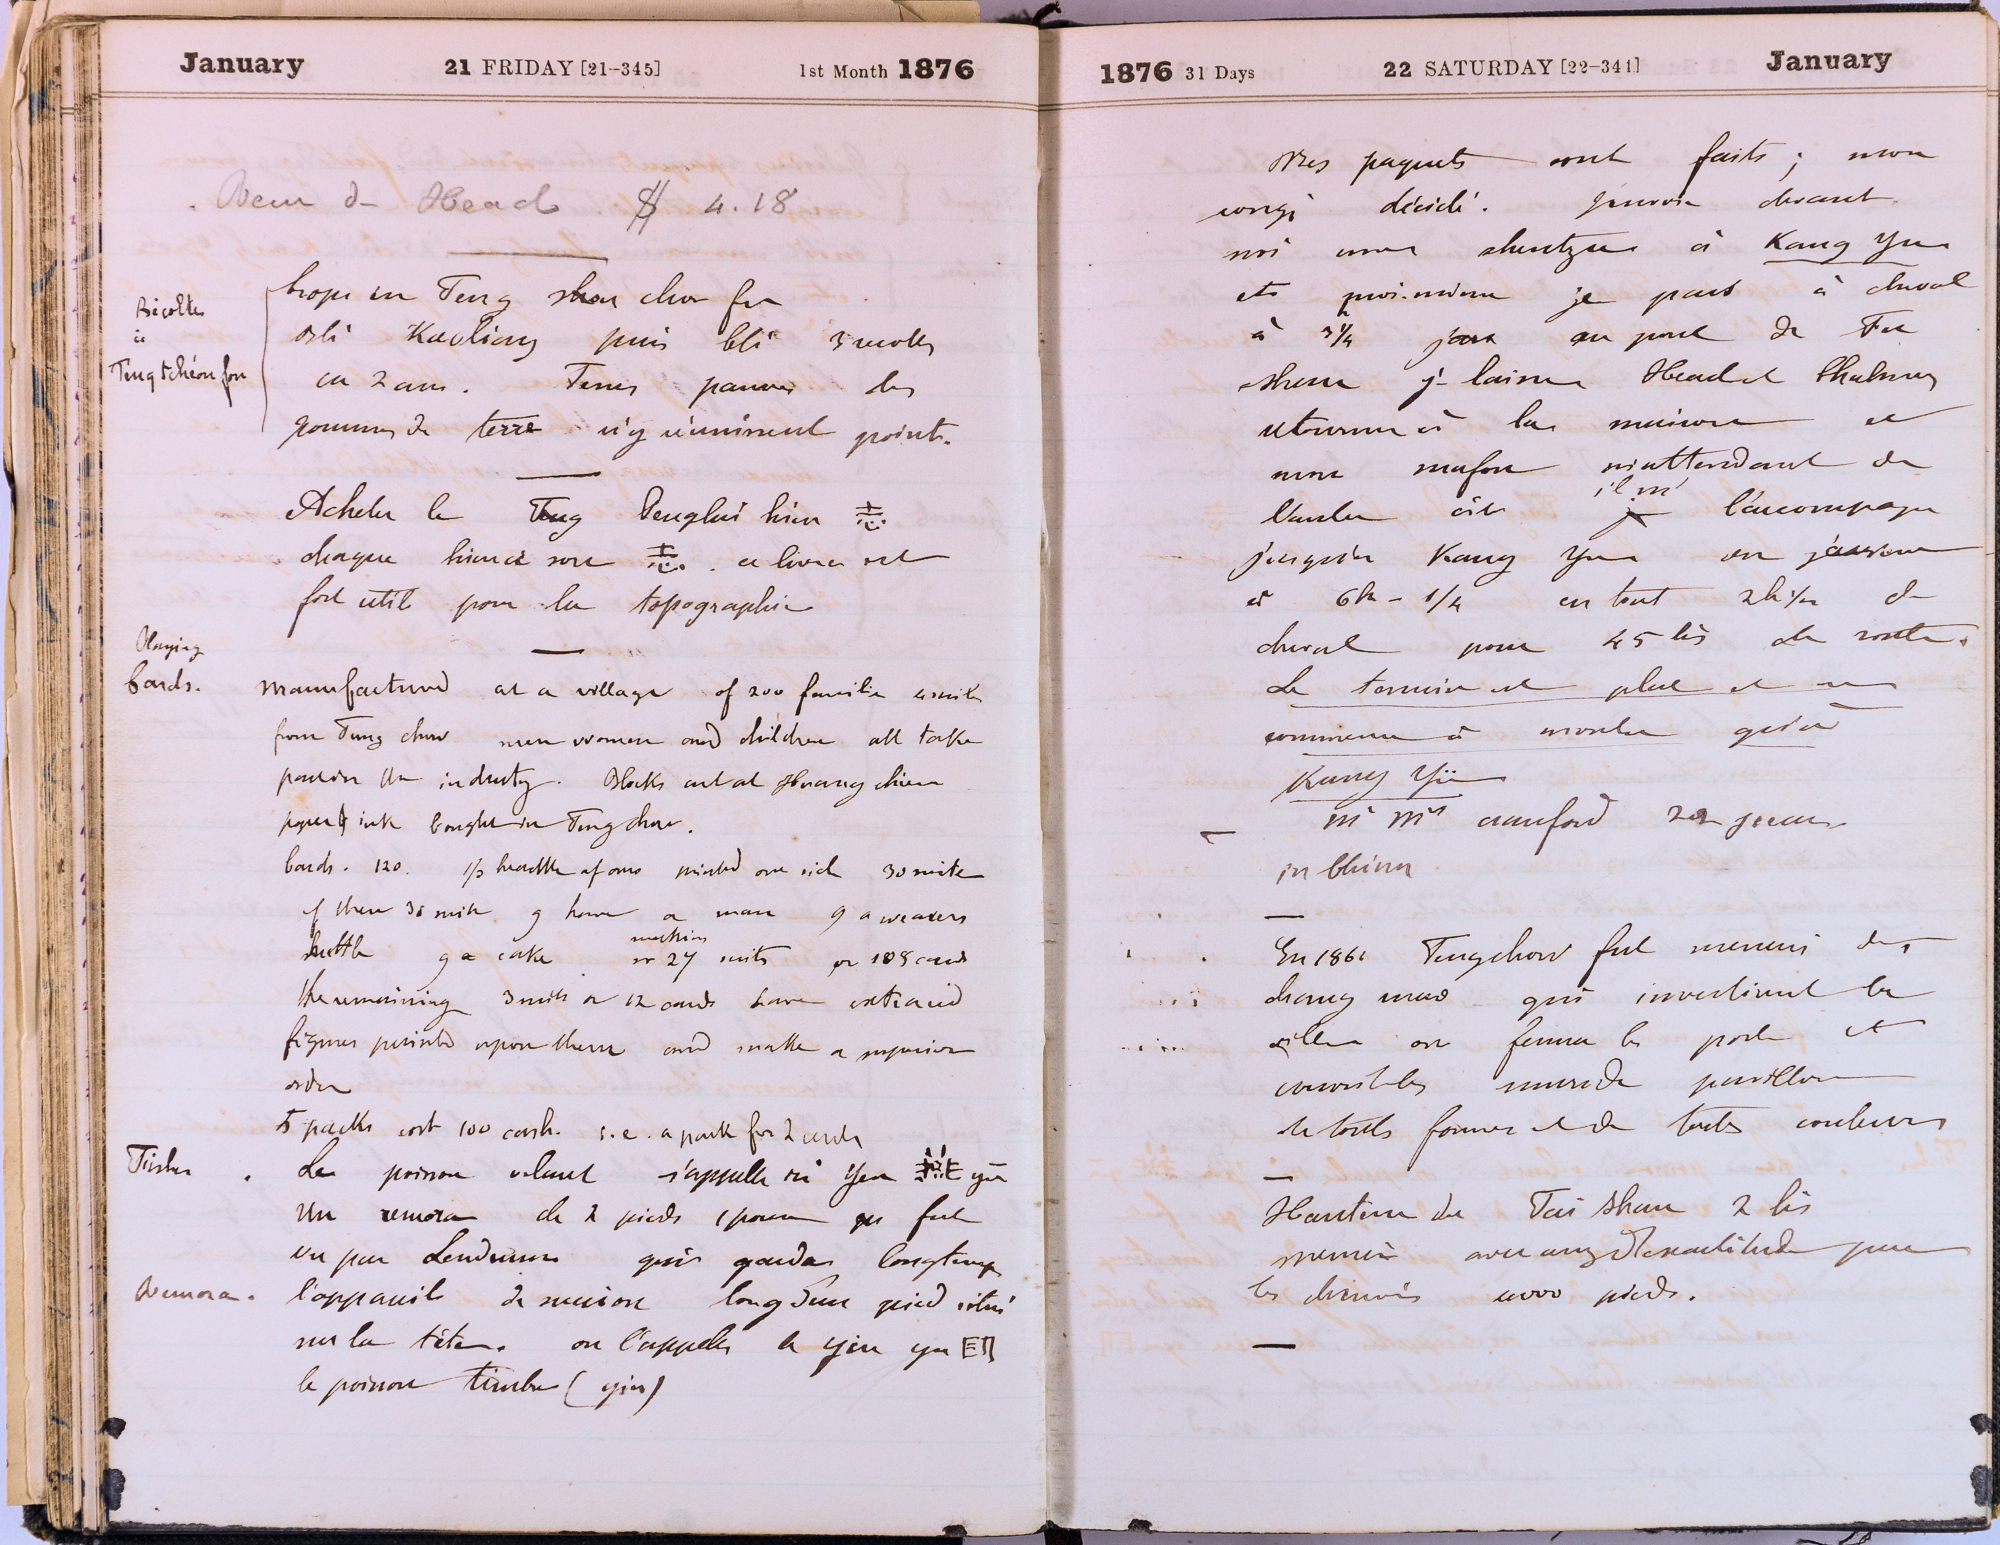 January 21 FRIDAY [21-345] 1st Month 1876
de Head $ 4.18
Récoltes
à
Teng tchéou fou
Crops in Teng chow fu
Kaoliang puis blé 3 récoltes
en 2 ans. Terres pauvres les
pommes de terre n'y réussissent point.
Acheter le Teng Penglai hien 志
chaque hien a son 志. ce livre est
fort utile pour la topographie
Playing
Cards.
manufactured at a village of 200 families 4 miles
from Teng chow men women and children all take
part in the industry. Blocks cut at Hwang hien
paper & ink bought in Teng chow.
Cards. 120. 1/3 breadth of ours printed one side 30 suits
of these 30 suits 9 have a man 9 a weavers
shuttle 9 a cake making
or 27 suits or 108 cards
the remaining 3 suits or 12 cards have
figures printed upon them and make a superior
order
5 packs cost 100 cash. i.e. a pack for 2 cents
Le poisson volant s'appelle yen 燕 yü
Un remora de 2 pieds 1 pouce fut
vu par qui garda longtemps
Remora. l'appareil de succion long d'un pied situé
sur la tête. on l'appelle le yin yu 印
le poisson timbre (yin)
1876 31 Days 22 SATURDAY [22-344] January
Mes paquets sont faits; mon
congé décidé. J'envoie devant
moi une shentzu à Kang Yu
et moi-même je pars à cheval
à 3h 3/4 au pont de Fu
shan je laisse Head et Chalmers
retourner à la maison et
mon mafou m'attendant de
l'autre côté il m' accompagne
jusqu'à Kang Yu où j'arrive
à 6h - 1/4 en tout 2h 1/2 de
cheval pour 45 lis de route.
Le terrain est plat et ne
commence à monter qu'à
Kang Yü
Mr Mrs Crawford 22 years
in China
En 1861 Tengchow fut menacé des
chang mao qui investirent la
ville on ferma les portes et
couvrit les murs de pavillons
de toutes formes et de toutes couleurs
Hauteur du Tai Shan 2 lis
mesuré avec assez d'exactitude par
les chinois 4000 pieds.